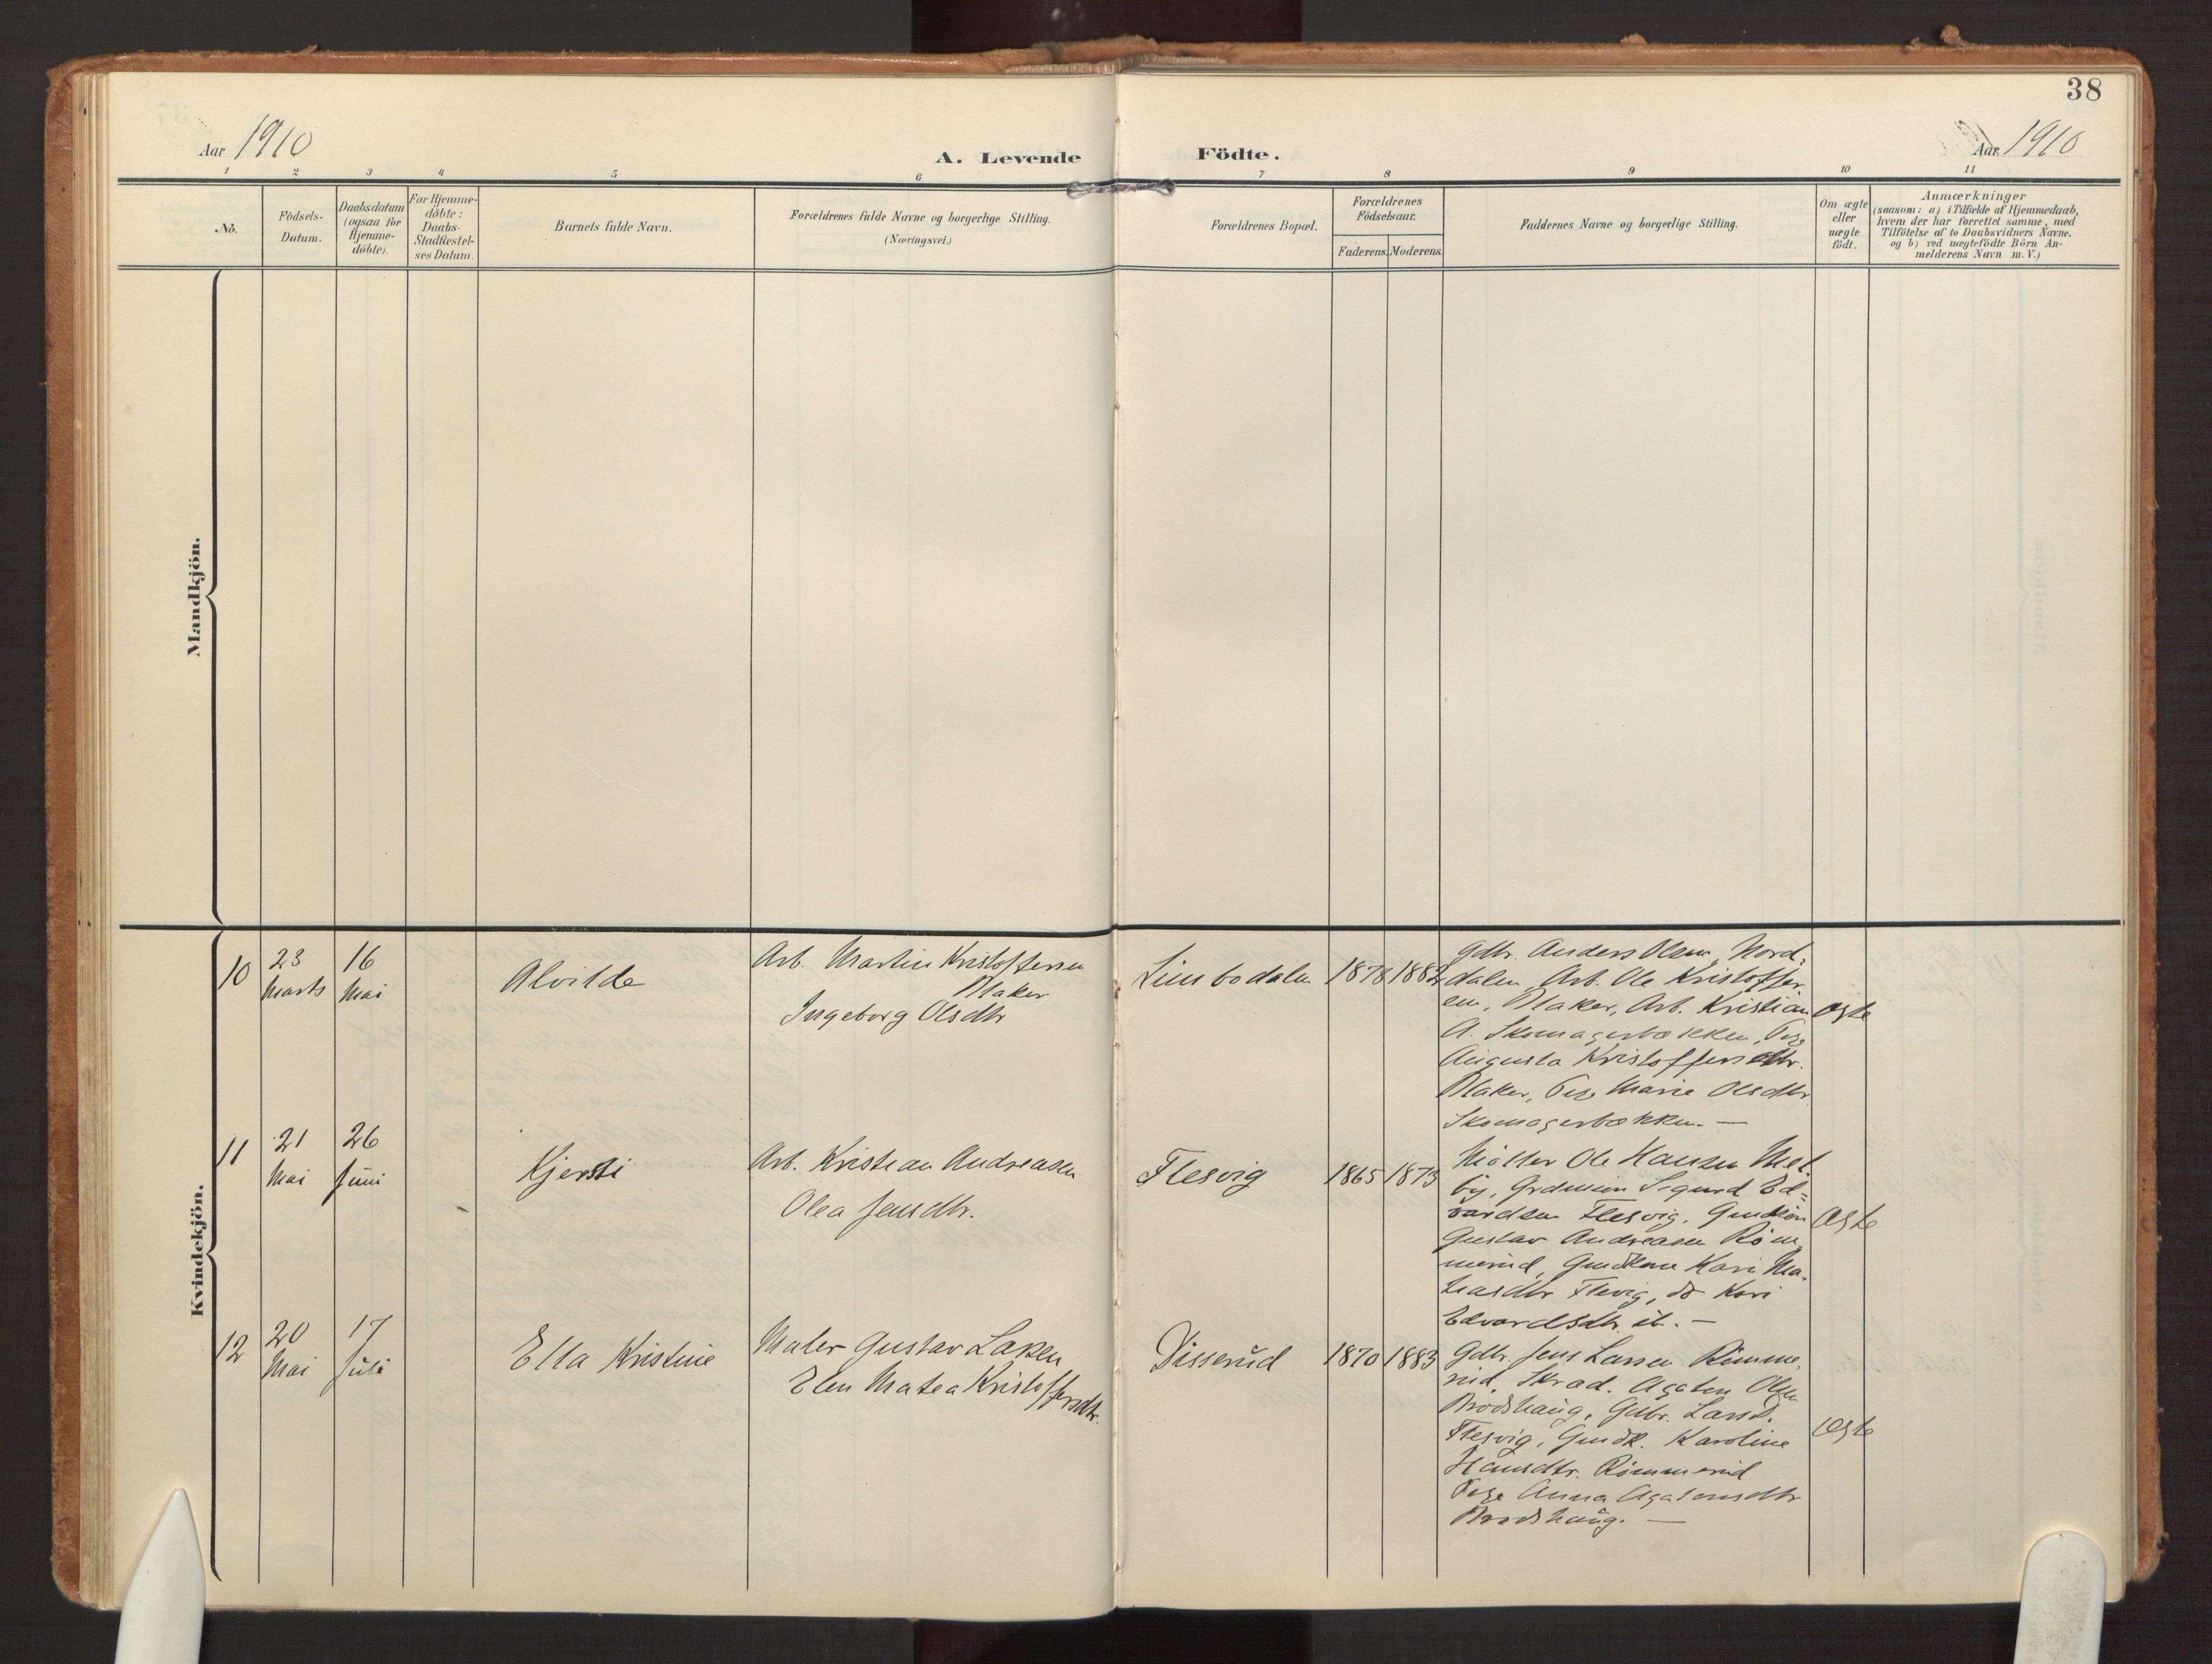 38
Aar 1910
A. Levende Födte.
Aar 1910
1 2 3 4 5 6 7 8 9 10 11
No.
Födsels-
Datum.
Daabsdatum
(ogsaa for
Hjemme-
döbte).
For Hjemme-
döbte:
Daabs-
Stadfæstel-
ses Datum.
Barnets fulde Navn.
Forældrenes fulde Navne og borgerlige Stilling.
(Næringsvei.)
Forældrenes Bopæl.
Forældrenes
Födselsaar.
Faderens. Moderens.
Faddernes Navne og borgerlige Stilling.
Om ægte
eller
uægte
födt.
Anmærkninger
(saasom: a) i Tilfælde af Hjemmedaab,
hvem der har forrettet samme, med
Tilföielse af to Daabsvidners Navne,
og b) ved uægtefödte Börn An-
melderens Navn m.V.)
Mandkjön.
Kvindekjön.
10
23
Marts
16
Mai
Alvilde
Arb. Martin Kristoffersen
Plaken
Ingeborg Olsdtr
Limbodalen
1878
1882
Gdbr. Anders Olsen, Nord-
dalen, Arb. Ole Kristoffer-
sen, Plaken, Arb. Kristian
A. Skomagerbækken, Pige
Augusta Kristoffersdtr.
Plaken, Pige Marie Olsdtr
Skomagerbækken. —
Ægte
11
21
Mai
26
Juni
Kjersti
Arb. Kristian Andreasen
Olea Jensdtr.
Flesvig
1865
1873
Møller Ole Hansen Mel-
by, Grdmin Sigurd Ed-
vardsen Flesvig,
Gustav Andreasen Röm-
merud, Kari Ma-
thiasdtr Flesvig, do Kari
Edvardsdtr. st. —
Ægte
12
20
Mai
17
Juli
Ella Kristine
Maler Gustav Larsen
Elen Matea Kristoffersdtr.
Disserud
1870
1883
Gdbr. Jens Larsen Römme-
rud, Skræd. Agaton Olsen
Brodshaug, Gdbr. Lars
Flesvig, Gmdk. Karoline
Hansdtr. Römmerud
Pige Anna Agatonsdtr
Brodshaug. —
Ægte